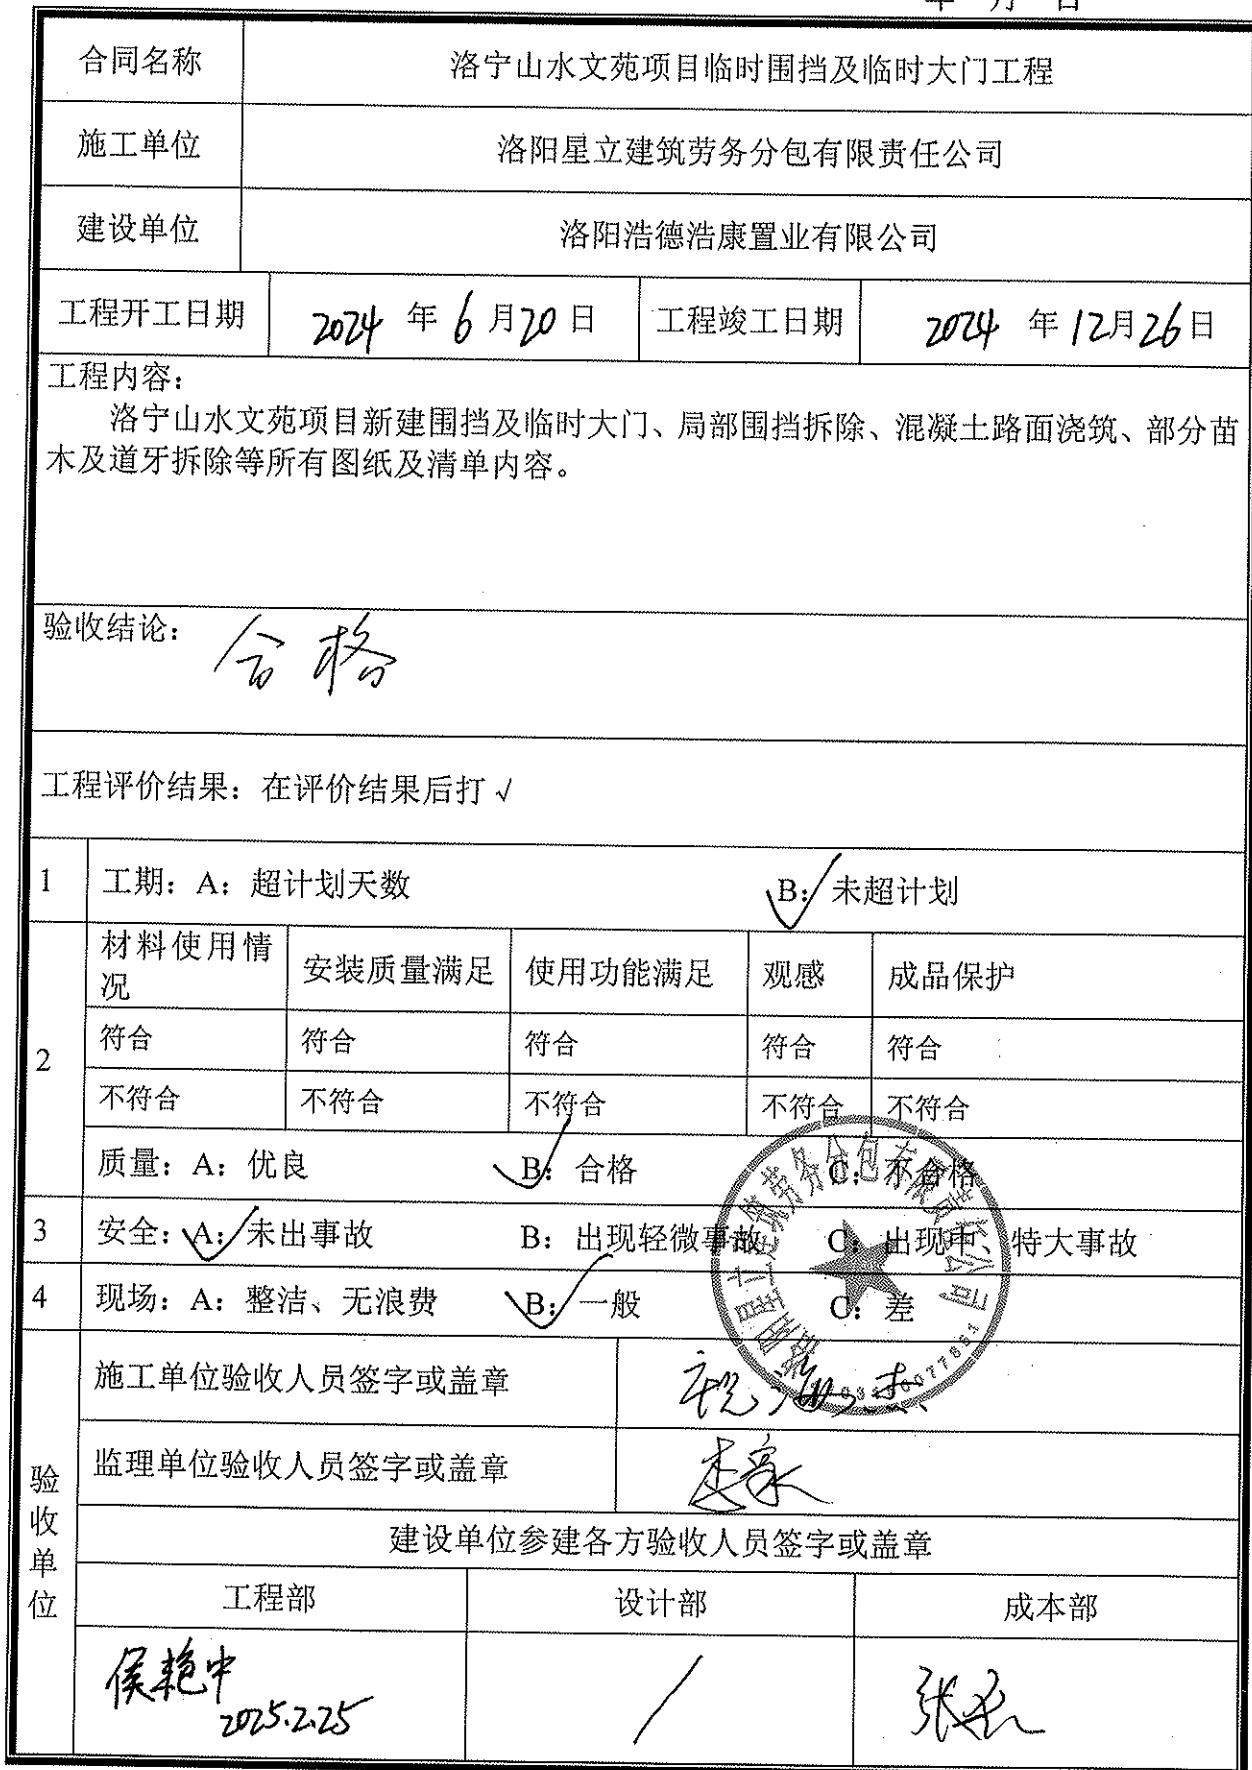 年 月 日
合同名称 洛宁山水文苑项目临时围挡及临时大门工程
施工单位 洛阳星立建筑劳务分包有限责任公司
建设单位 洛阳浩德浩康置业有限公司
工程开工日期 2024 年 6 月 20 日 工程竣工日期 2024 年 12 月 26 日
工程内容：
洛宁山水文苑项目新建围挡及临时大门、局部围挡拆除、混凝土路面浇筑、部分苗
木及道牙拆除等所有图纸及清单内容。
验收结论： 合格
工程评价结果：在评价结果后打√
1 工期：A：超计划天数 B：√未超计划
材料使用情
况 安装质量满足 使用功能满足 观感 成品保护
2
符合 符合 符合 符合 符合
不符合 不符合 不符合 不符合 不符合
质量：A：优良 B：√合格 C：不合格
3 安全：A：√未出事故 B：出现轻微事故 C：出现中、特大事故
4 现场：A：整洁、无浪费 B：√一般 C：差
洛阳星立建筑劳务分包有限责任公司
验收单位
施工单位验收人员签字或盖章
监理单位验收人员签字或盖章
建设单位参建各方验收人员签字或盖章
工程部 设计部 成本部
侯艳中 /
2025.2.25